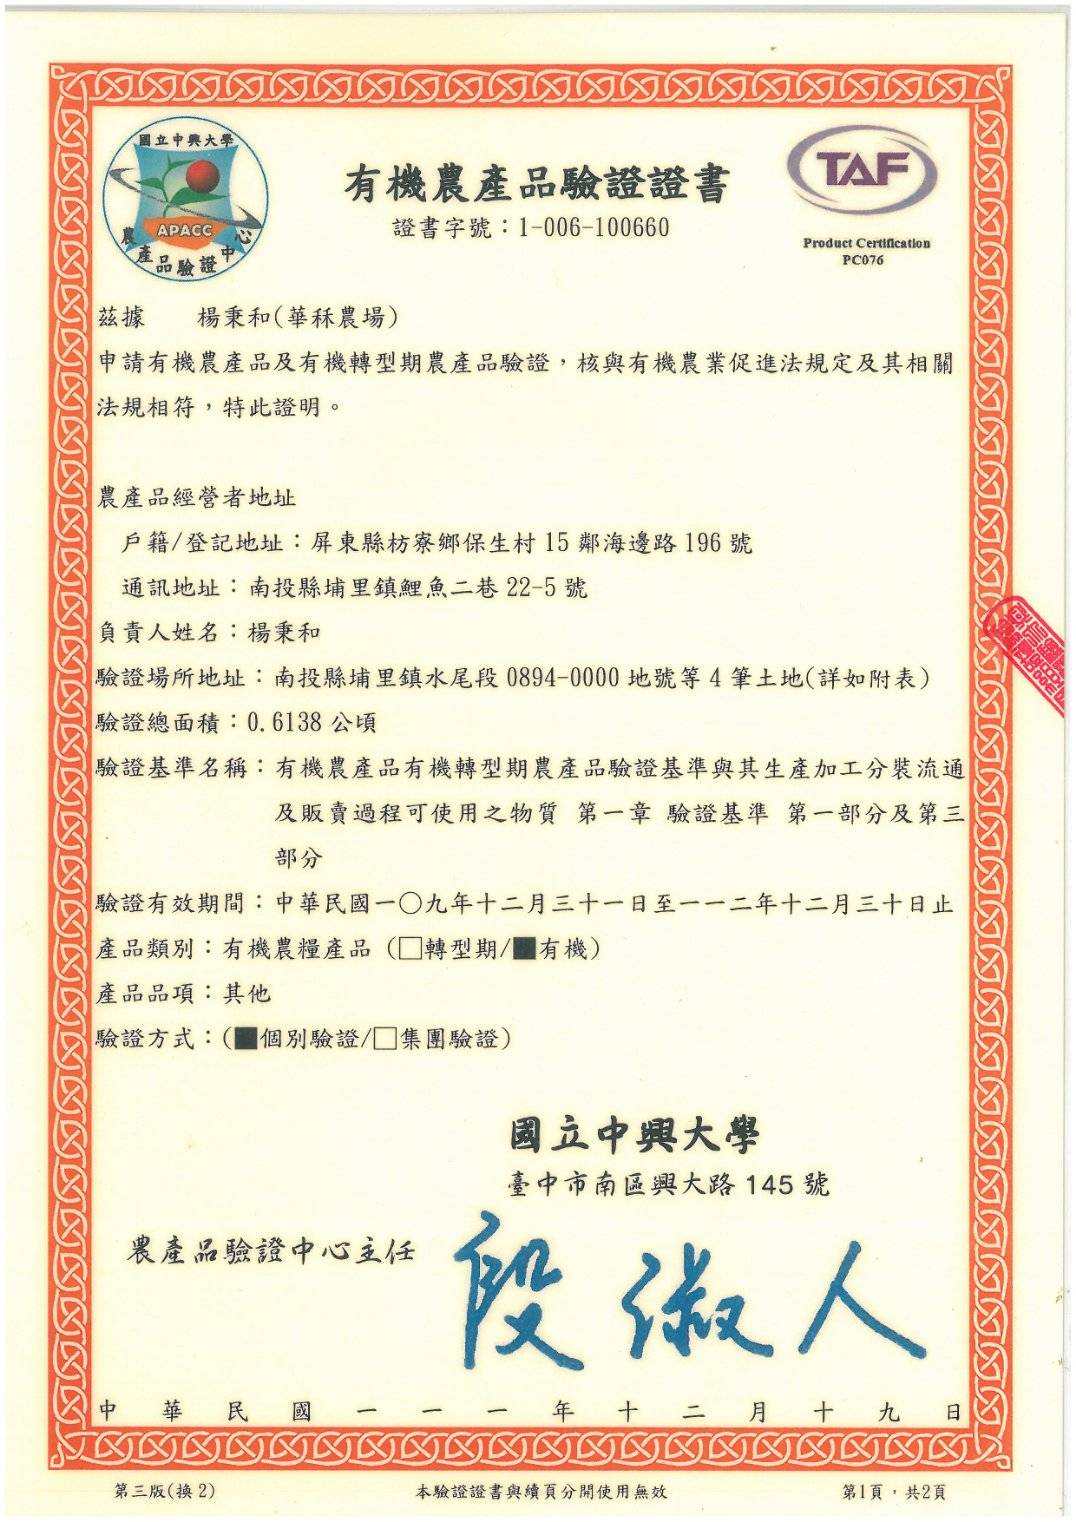 國立中興大學
APACC
農產品驗證中心
TAF
Product Certification
PC076
有機農產品驗證證書
證書字號：1-006-100660
茲據　　楊秉和(華秝農場)
申請有機農產品及有機轉型期農產品驗證，核與有機農業促進法規定及其相關
法規相符，特此證明。
農產品經營者地址
戶籍/登記地址：屏東縣枋寮鄉保生村 15 鄰海邊路 196 號
通訊地址：南投縣埔里鎮鯉魚二巷 22-5 號
負責人姓名：楊秉和
驗證場所地址：南投縣埔里鎮水尾段 0894-0000 地號等 4 筆土地(詳如附表)
驗證總面積：0.6138 公頃
驗證基準名稱：有機農產品有機轉型期農產品驗證基準與其生產加工分裝流通
及販賣過程可使用之物質 第一章 驗證基準 第一部分及第三
部分
驗證有效期間：中華民國一○九年十二月三十一日至一一二年十二月三十日止
產品類別：有機農糧產品 (□轉型期/■有機)
產品品項：其他
驗證方式：(■個別驗證/□集團驗證)
國立中興大學
臺中市南區興大路 145 號
農產品驗證中心主任
段淑人
中華民國一一一年十二月十九日
第三版(換 2)
本驗證證書與續頁分開使用無效
第1頁，共2頁